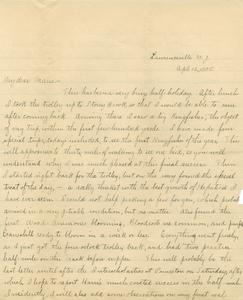 Lawrenceville N.J.
Apr. 12, 1905.
My dear Mama:—
This has been a very busy half-holiday. After lunch
I took the trolley up to Stony Brook, so that I should be able to row
after coming back. Arriving there I saw a big Kingfisher, the object
of my trip, within the first few hundred yards. I have made four
special trips, today included, to see the first Kingfisher of the year. This
will approximate thirty miles of walking to see one bird, so you will
understand why I was much pleased at this final success. Then
I started right back for the trolley, but on the way found the special
treat of the day, — a really thicket with the best growth of Hepatica I
have ever seen. Could not help picking a few for you, which probably
arrived in a very pitiable condition, but no matter. Also found the
first Wood Anemone blooming. Bloodroot is common, and perhaps
will be in bloom in a week or less. Everything went finely,
as I just got the four o'clock trolley back, and had two practice
half-miles on the track before supper. This will probably be the
last letter until after the Interscholastics at Princeton on Saturday, after
which I hope to report Harris' much coveted success in the half mile.
Incidentally, I will also add some observations on very final